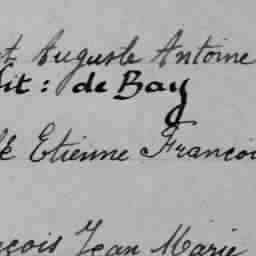 Auguste Antoine
dit : de Bay
Etienne François
Jean Marie